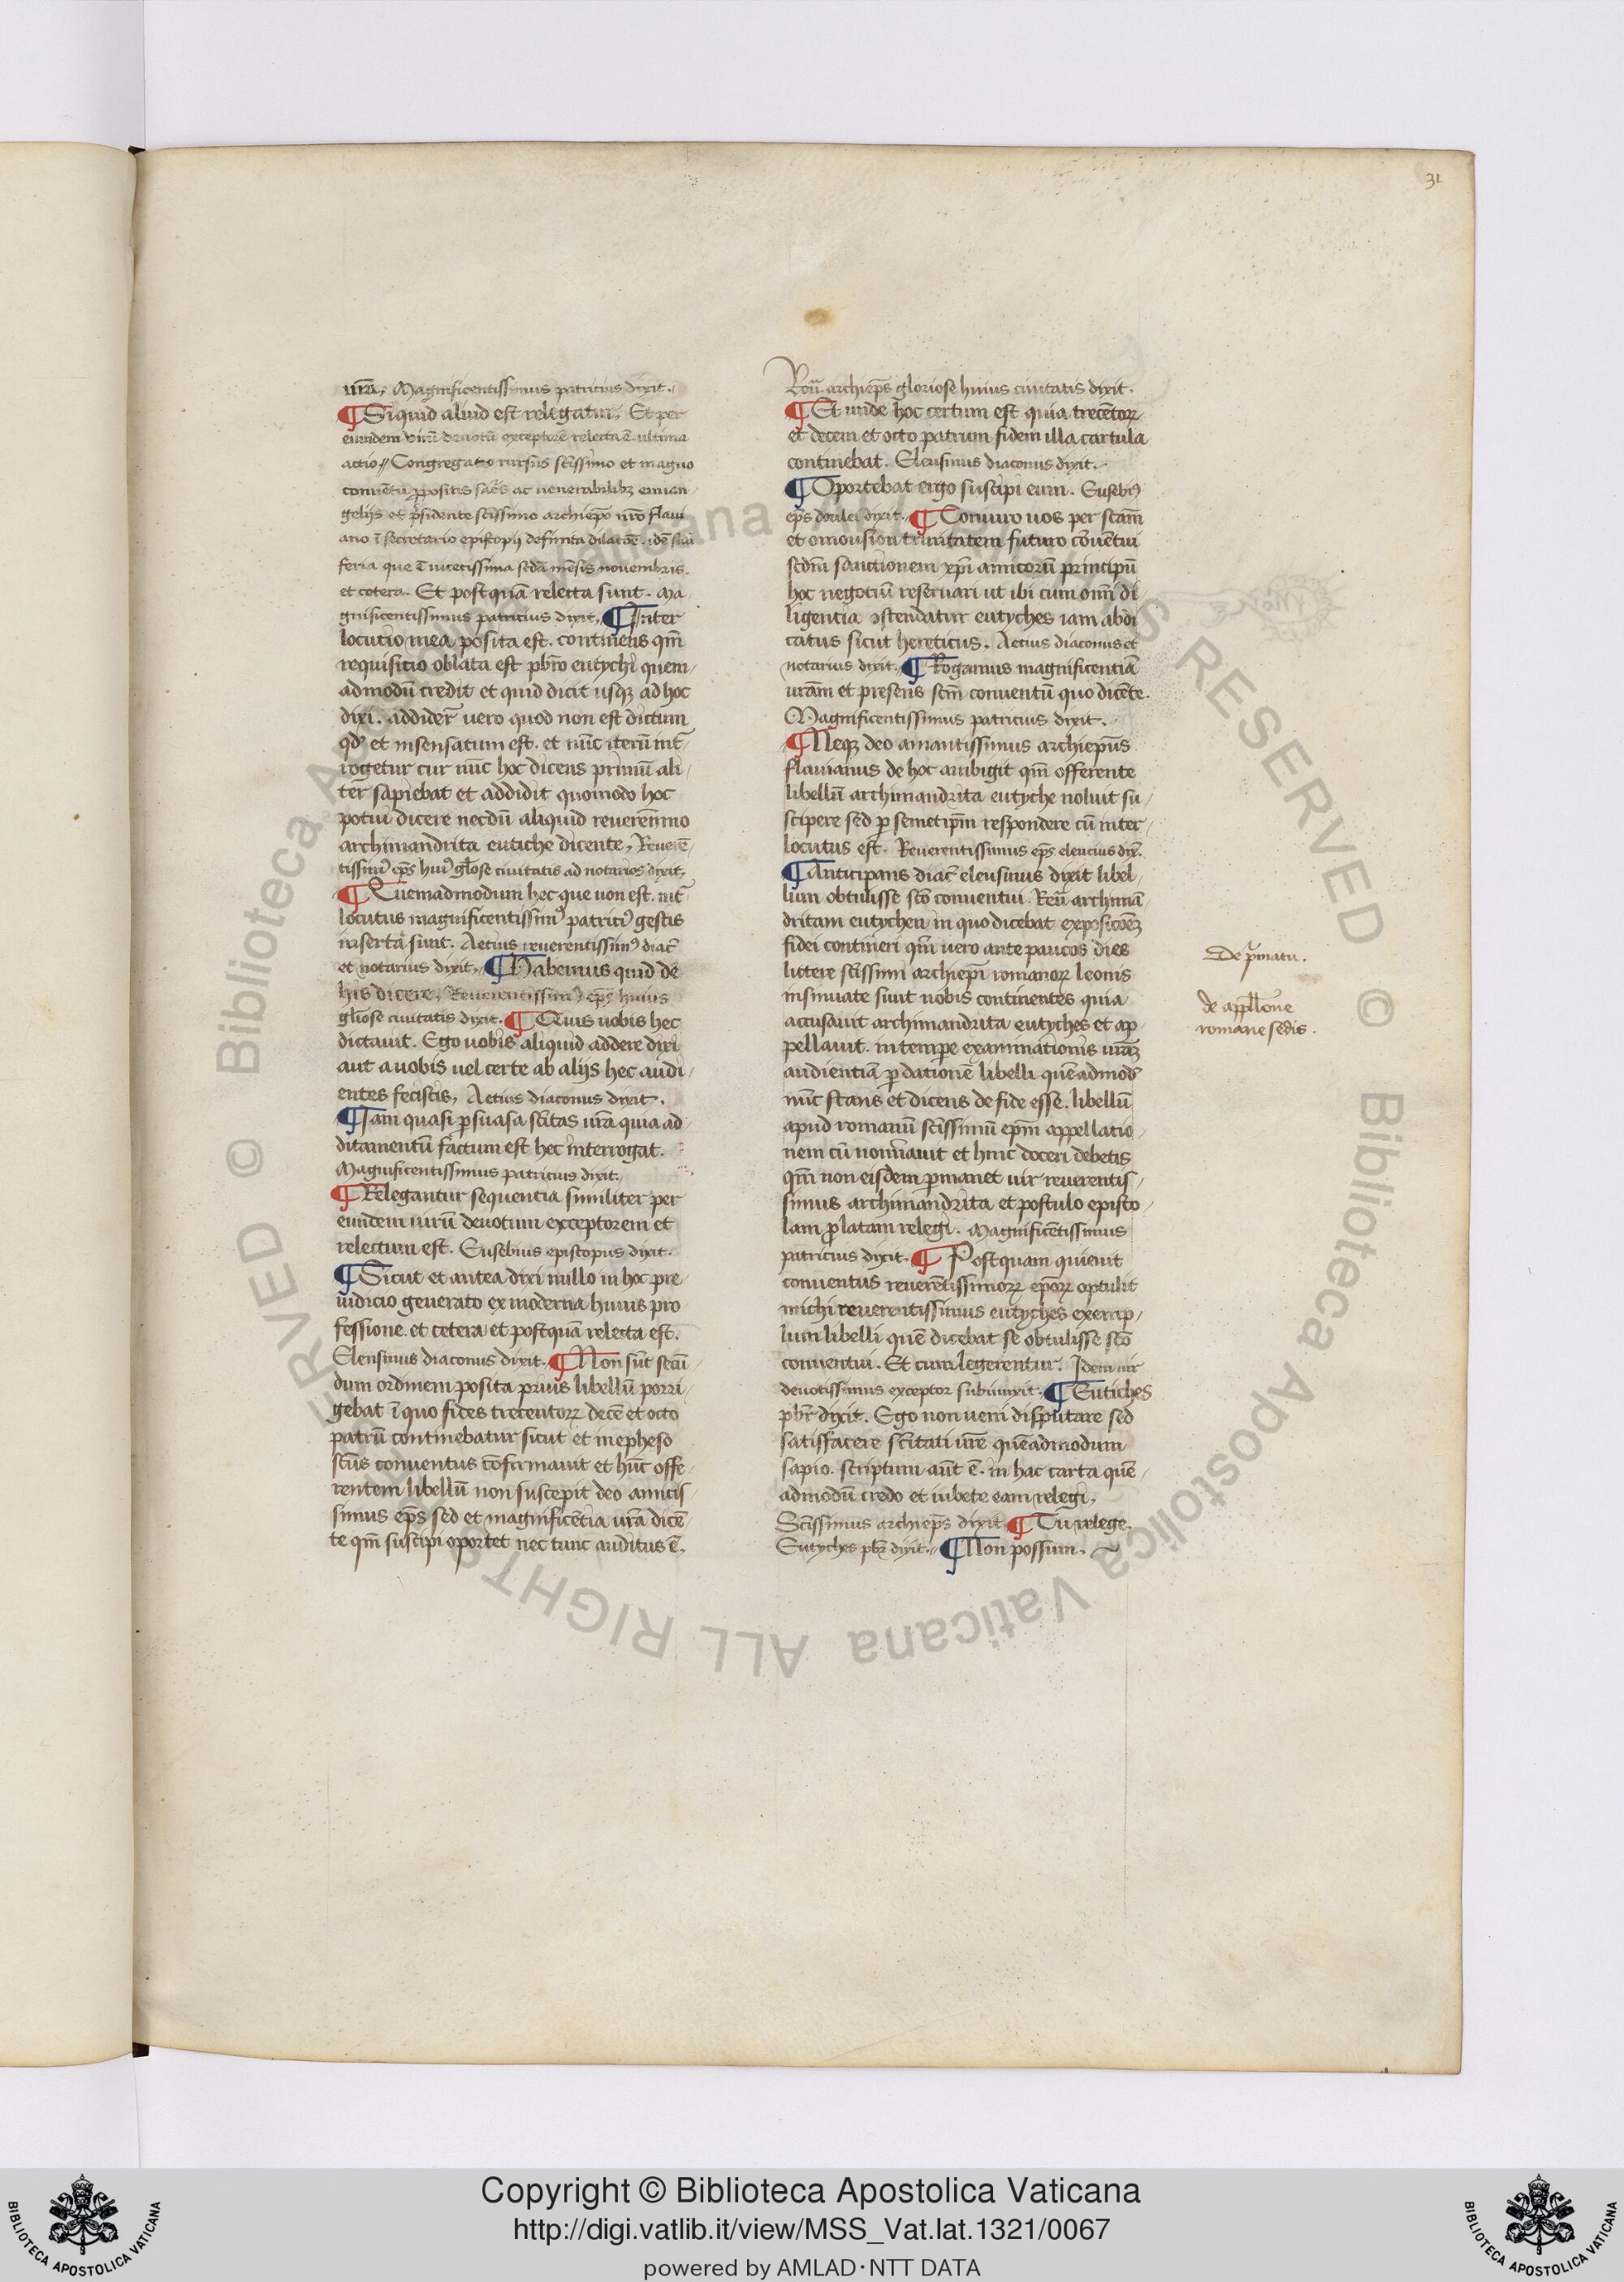 31
ur̄a, Magnificentissimus patricius dixit.
¶ Siquid aliud est relegatur, Et per
eundem virū deuotū exceptorē relecta ē ultima
actio // Congregato rursus sc̄issimo et magno
conuētu ꝓpositis sac̄s ac uenerabilibꝫ euuan
gelijs et p̄sidente sc̄issimo archiep̄o nr̄o flaui
ano ī secretario episcopij definita dilatōē
feria que ē uicesima sc̄da mēsis nouembris.
et cetera. Et postquā relecta sunt. Ma
gnificentissimus patricius dixit, ¶ Inter
locutio mea posita est. continens qm̄
requisitio oblata est pb̄ro eutychi quem
admodū credit et quid dicit usqꝫ ad hoc
dixi. addider̄ uero quod non est dictum
qd̓ et insensatum est. et nūc iterū int̄
rogetur cur nūc hoc dicens primū ali
ter sapiebat et addidit quomodo hoc
potui dicere necdū aliquid reuerēmo
archimandrita eutiche dicente, Reuerē
tissim᷒ ep̄s hui᷒ gl̄ose ciuitatis ad notarios dixit,
¶ Quemadmodum hec que non est int̄
locutus magnificentissim᷒ patrici᷒ gestis
inserta sunt. Aetius reuerentissim᷒ diac̄
et notarius dixit, ¶ Habemus quid de
his dicere, Reuerentissim᷒ ep̄s huius
gl̄iose ciuitatis dixit. ¶ Quis uobis hec
dictauit. Ego uobis aliquid addere dixi
aut a uobis uel certe ab alijs hec audi
entes fecistis, Aetius diaconus dixit.
¶ Iam quasi ꝑsuasa sc̄itas ur̄a quia ad
ditamentū factum est hec interrogat.
Magnificentissimus patricius dixit.
¶ Relegantur sequentia similiter per
eundem uirū deuotum exceptorem et
relectum est. Eusebius episcopus dixit.
¶ Sicut et antea dixi nullo in hoc pre
iudicio generato ex moderna huius pro
fessione. et cetera et postquā relecta est.
Eleusinus diaconus dixit. ¶ Non sūt secū
dum ordinem posita prius libellū porri
gebat ī quo fides trecentorꝝ decē et octo
patrū continebatur sicut et in epheso
sc̄us conuentus cōfirmauit et hūc offe
rentem libellū non suscepit deo amicis
simus ep̄s sed et magnificētia ur̄a dicē
te qm̄ suscipi oportet nec tunc auditus ē.
Reū archiep̄s gloriose huius ciuitatis dixit.
¶ Et unde hoc certum est quia trecētorꝝ
et decem et octo patrum fidem illa cartula
continebat. Eleusinus diaconus dixit.
¶ Oportebat ergo suscipi eum. Eusebi᷒
ep̄s dorilei dixit. ¶ Coniuro uos per sc̄am
et omousion trinitatem futuro cōuētui
scdm̄ sanctionem xp̄i amicorū principū
hoc negotiū reseruari ut ibi cum omī di
ligencia ostendatur eutyches iam abdi
catus sicut hereticus. Aetius diaconus et
notarius dixit. ¶ Rogamus magnificentiā
ur̄am et presens sc̄m conuentū quo dicēte.
Magnificentissimus patricius dixit.
¶ Neqꝫ deo amantissimus archiep̄us
flauianus de hoc ambigit qm̄ offerente
libellū archimandrita eutyche noluit su
scipere sed ꝑ semetip̄m respondere cū inter
locutus est. Reuerentissimus ep̄s eleucius dix̄.
¶ Anticipans diac̄ eleusinus dixit libel
lum obtulisse sc̄o conuentui. Reū archimā
dritam eutychen in quo dicebat exposicōēꝫ
fidei contineri qm̄ uero ante paucos dies
littere sc̄issimi archiep̄i romanorꝝ leonis
insinuate sunt nobis continentes quia
accusauit archimandrita eutyches et ap
pellauit. in tempe examinationis ur̄aꝫ
audientiā ꝑ dationē libelli quēadmod̓
nūc stans et dicens de fide esse. libellū
apud romanū sc̄issimū ep̄m appellatio
nem cū nom̄auit et hinc doceri debetis
qm̄ non eisdem ꝑmanet uir reuerentis
simus archimandrita et postulo episto
lam ꝓlatam relegi. Magnificētissimus
patricius dixit. ¶ Postquam quieuit
conuentus reuerētissimorꝝ ep̄orꝝ optulit
michi reuerentissimus eutyches exemp
lum libelli quē dicebat se obtulisse sc̄o
conuentui. Et cum legerentur. Idem uir
deuotissimus exceptor subiunxit. ¶ Eutiches
pb̄r dixit. Ego non ueni disputare sed
satisfacere sc̄itati ur̄e quēadmodum
sapio. scriptum aūt ē. in hac carta quē
admodū credo et iubete eam relegi,
Sc̄issimus archiep̄s dixit ¶ Tu relege.
Eutyches pb̄r dixit. ¶ Non possum.
De p̲̄matu.
de appl̄lone
romane sedis.
Copyright © Biblioteca Apostolica Vaticana
http://digi.vatlib.it/view/MSS_Vat.lat.1321/0067
powered by AMLAD·NTT DATA
BIBLIOTECA APOSTOLICA VATICANA
BIBLIOTECA APOSTOLICA VATICANA
© Biblioteca Apostolica Vaticana ALL RIGHTS RESERVED © Biblioteca Apostolica Vaticana ALL RIGHTS RESERVED